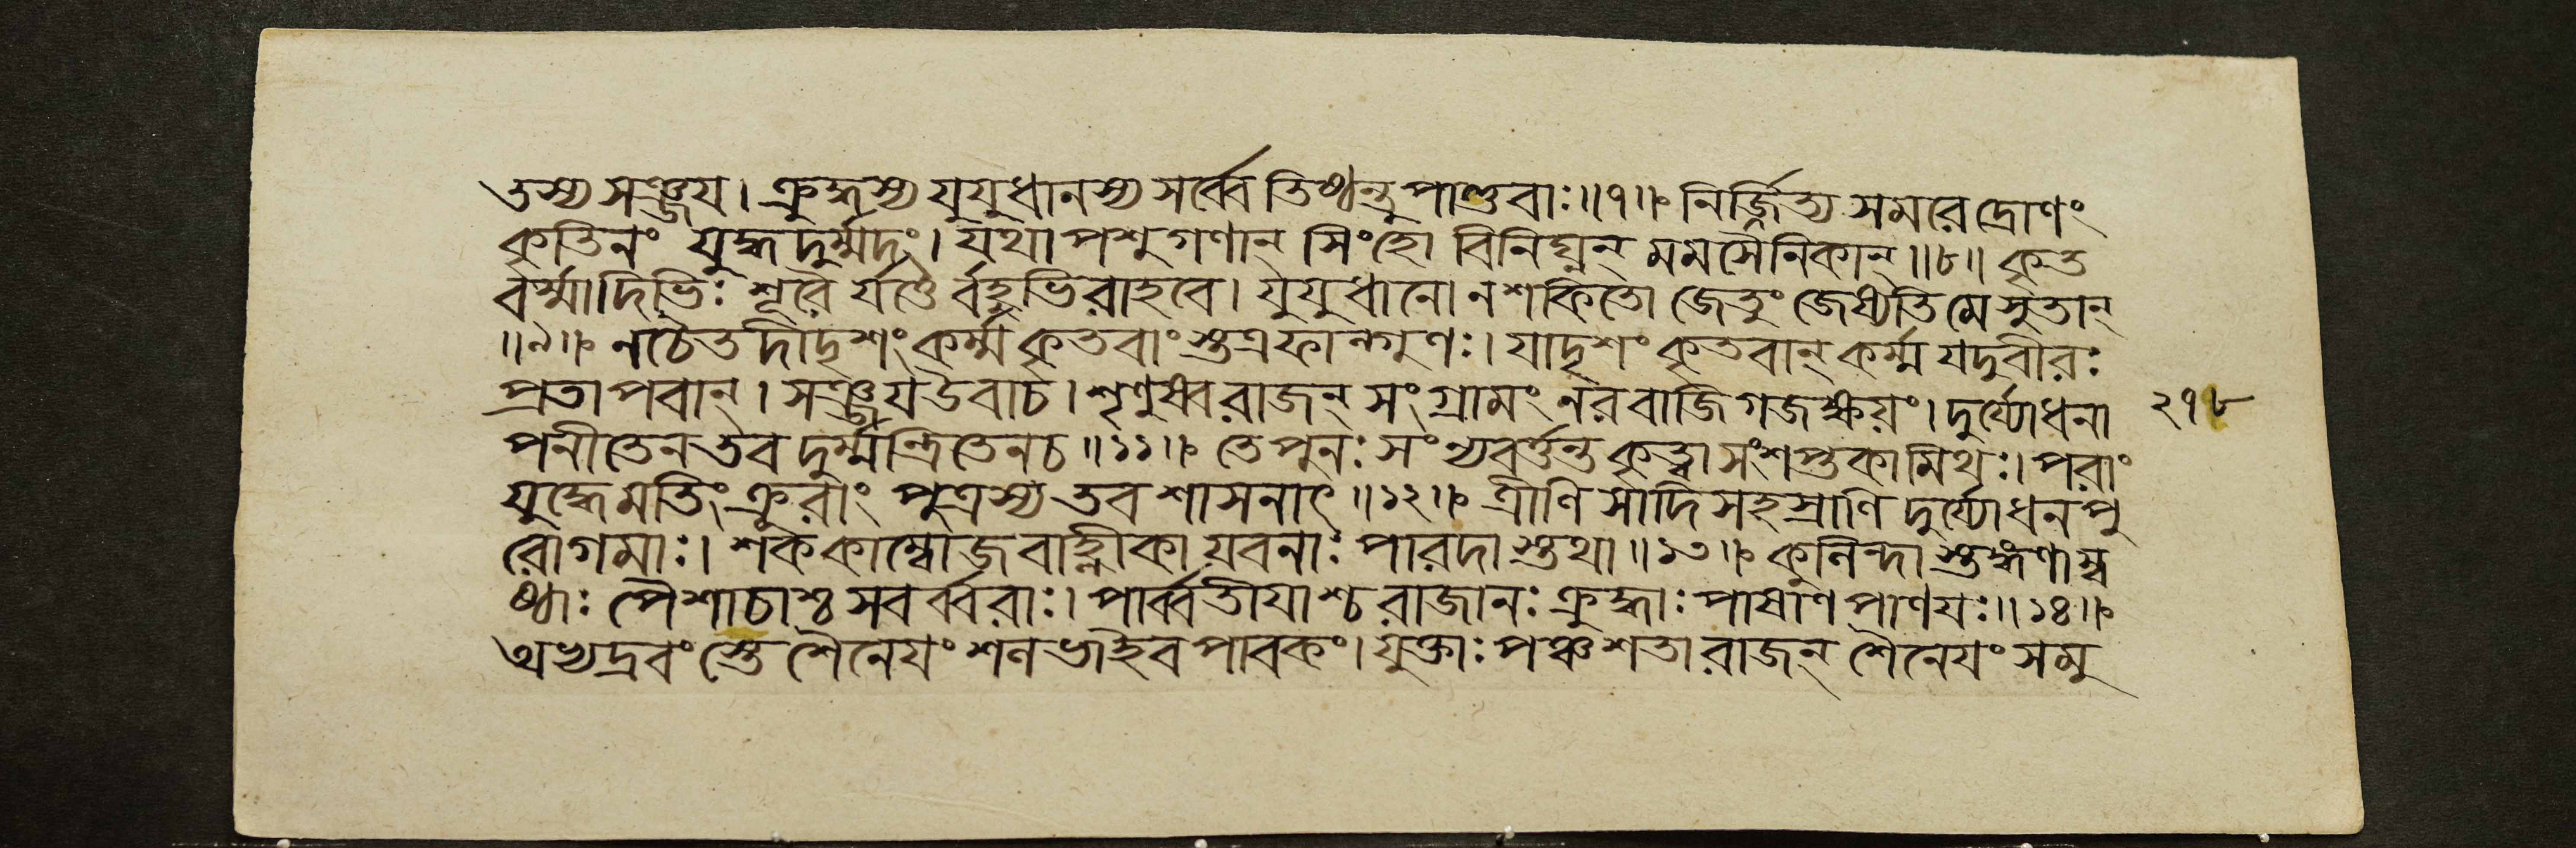 তস্য সঞ্জয়। ক্রুদ্ধস্য যুযুধানস্য সর্ব্বে তিষ্ঠন্তু পাণ্ডবাঃ॥৭॥ নির্জ্জিত্য সমরে দ্রোণং
কৃতিনং যুদ্ধদুর্ম্মদং। যথা পশুগণান্ সিংহো বিনিঘ্নন্ মম সৈনিকান্॥৮॥ কৃত
বর্ম্মাদিভিঃ শূরৈ র্যত্তৈ র্বহুভিরাহবে। যুযুধানো ন শকিতো জেতুং জেষ্যতি মে সুতান্
॥৯॥ নচৈতদীদৃশং কর্ম্ম কৃতবাংস্তত্র ফাল্গুণঃ। যাদৃশং কৃতবান্ কর্ম্ম যদুবীরঃ
প্রতাপবান্। সঞ্জয় উবাচ। শৃণুষ্ব রাজন্ সংগ্রামং নরবাজিগজক্ষয়ং। দুর্য্যোধনা
২৭৮
পনীতেন তব দুর্ম্মন্ত্রিতেন চ॥১১॥ তে পুনঃ সংন্যবর্ত্তন্ত কৃত্বা সংশপ্তকা মিথঃ। পরাং
যুদ্ধে মতিং ক্রূরাং পুত্রস্য তব শাসনাৎ॥১২॥ ত্রীণি সাদিসহস্রাণি দুর্য্যোধনপু
রোগমাঃ। শককাম্বোজবাহ্লীকা যবনাঃ পারদাস্তথা॥১৩॥ কুনিন্দাস্তঙ্গণাম্ব
ষ্ঠাঃ পৈশাচাশ্চ সবর্ব্বরাঃ। পার্ব্বতীয়াশ্চ রাজানঃ ক্রুদ্ধাঃ পাষাণপাণয়ঃ॥১৪॥
অভ্যদ্রবংস্তে শৈনেয়ং শলভা ইব পাবকং। যুক্তাঃ পঞ্চশতা রাজন্ শৈনেয়ং সমু